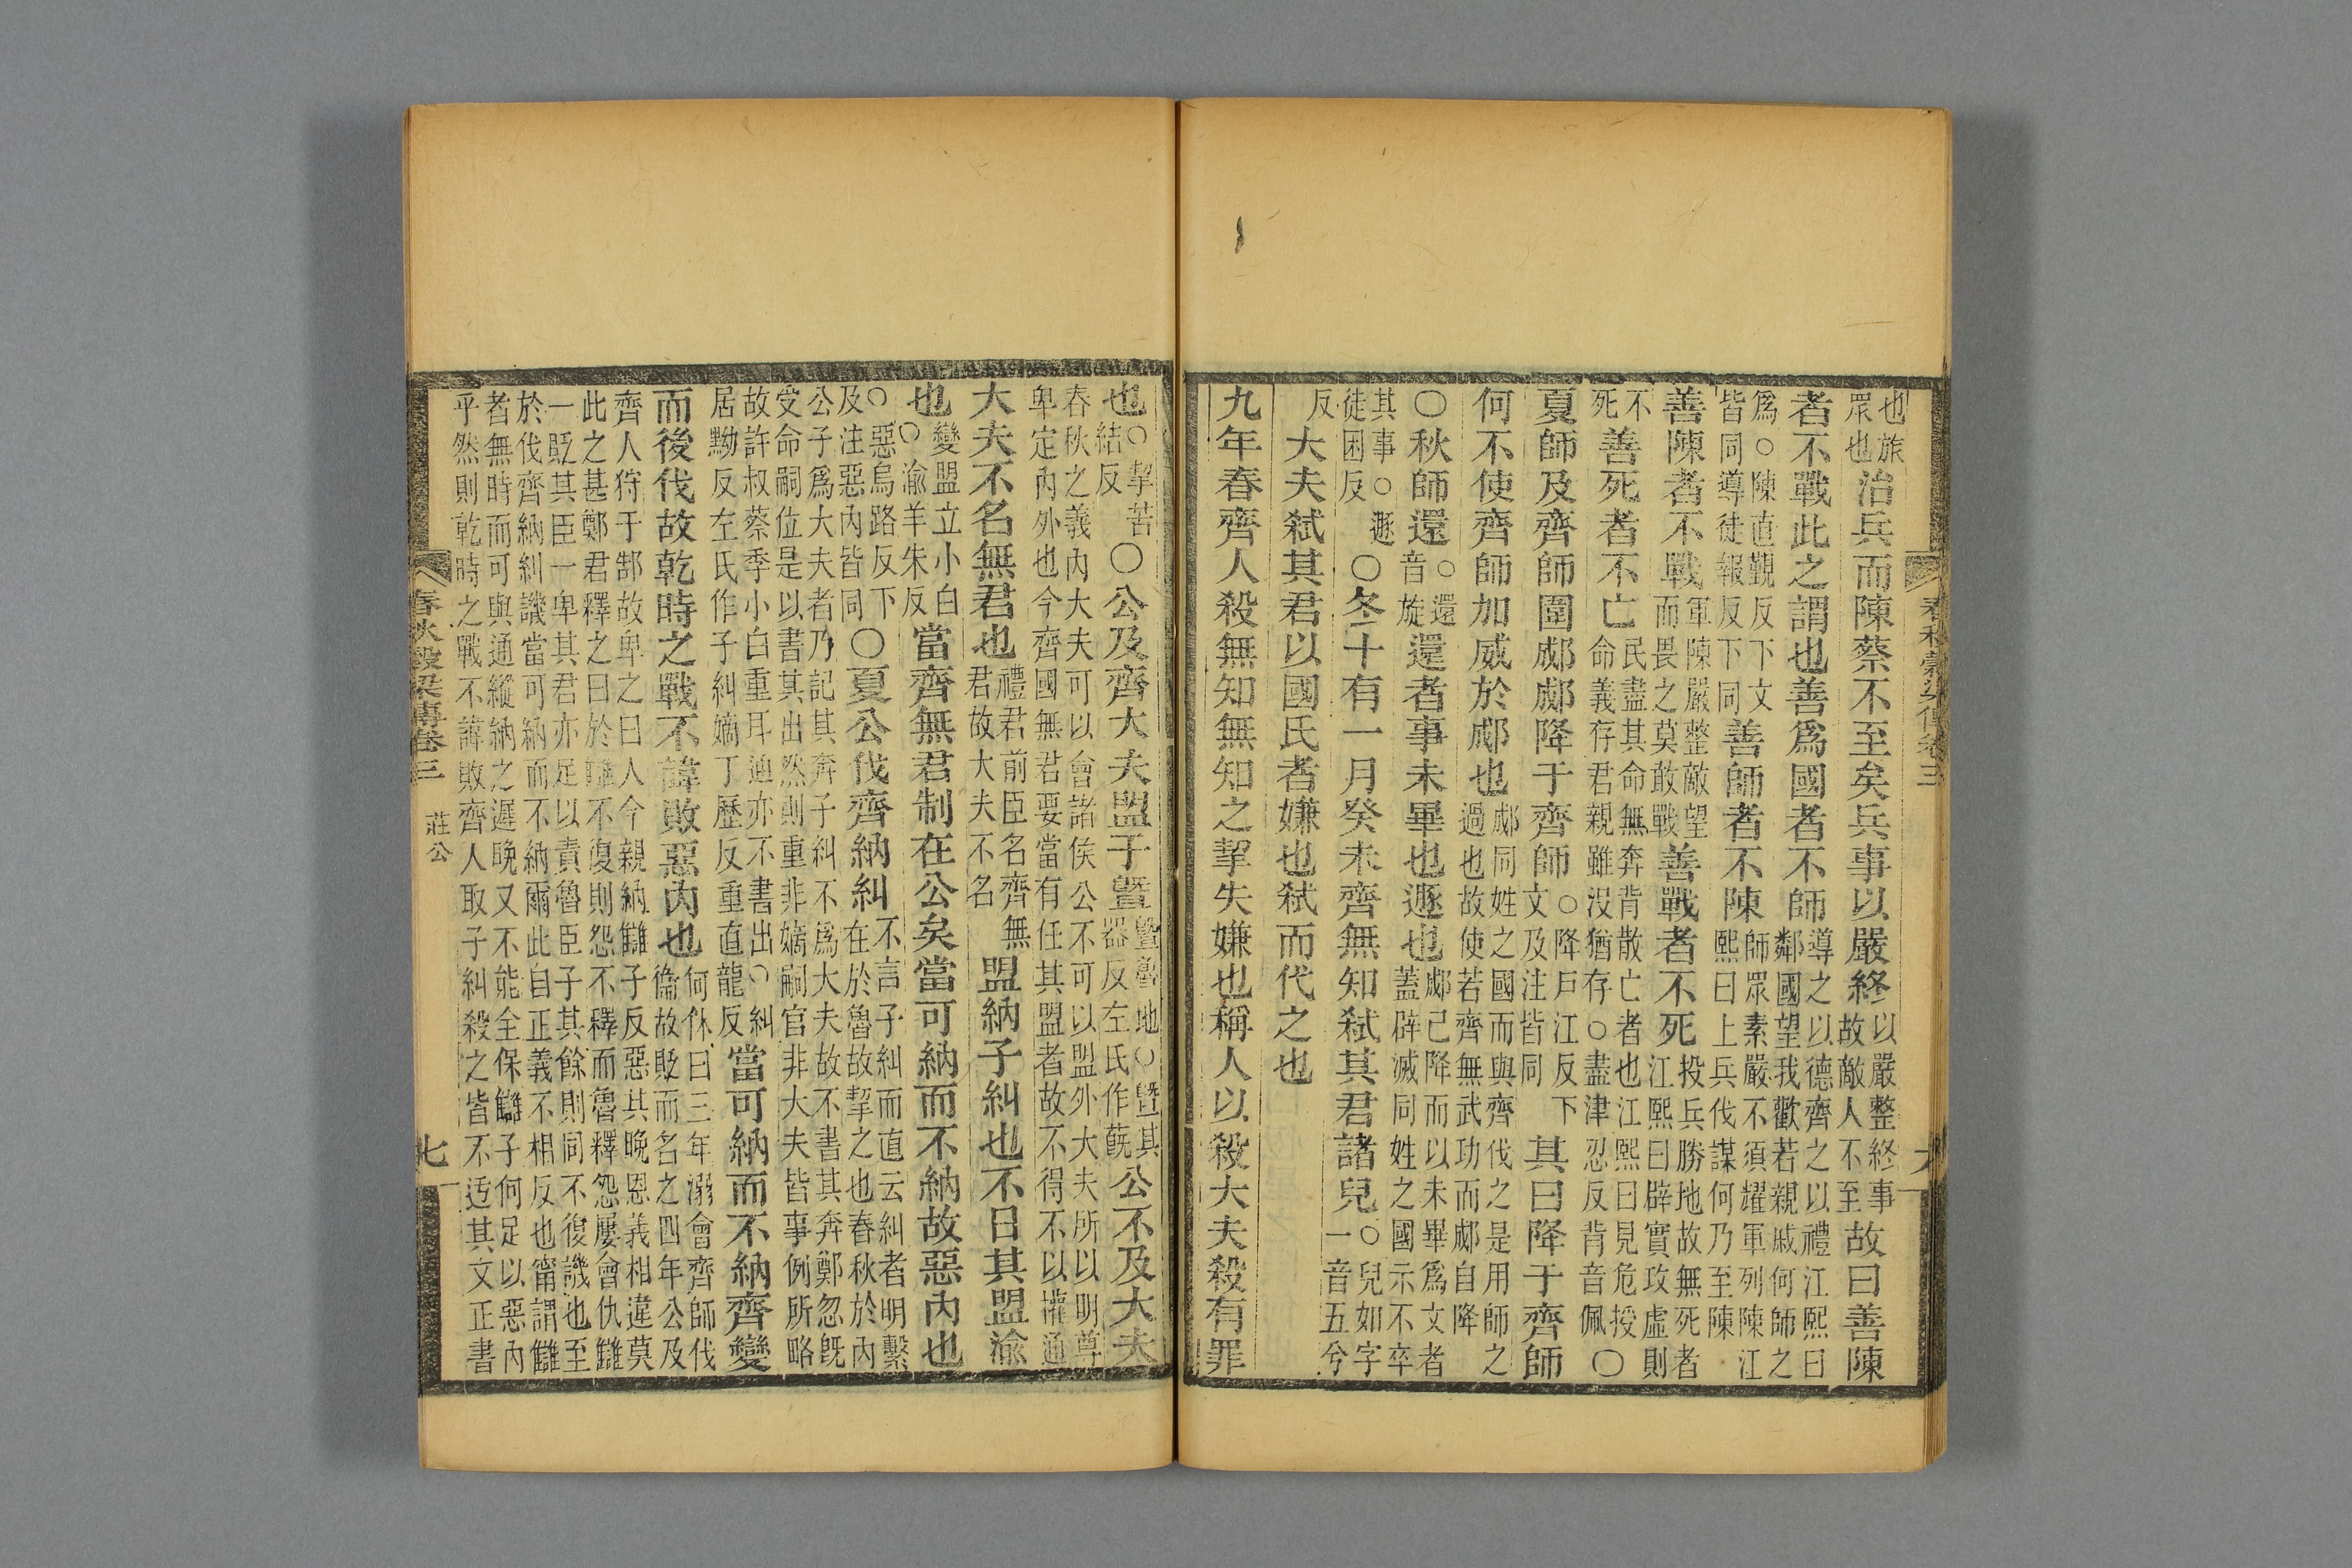 春秋穀梁傳卷三
六
也旅
眾也
治兵而陳蔡不至矣兵事以嚴終
以嚴整終事
故敵人不至
故曰善陳
者不戰此之謂也善爲國者不師
導之以德齊之以禮江熙曰
鄰國望我歡若親戚何師之
爲○陳直覲反下文
皆同導徒報反下同
善師者不陳
師眾素嚴不須耀軍列陳江
熙曰上兵伐謀何乃至陳
善陳者不戰
軍陳嚴整敵望
而畏之莫敢戰
善戰者不死
投兵勝地故無死者
江熙曰辟實攻虛則
不
死
善死者不亡
民盡其命無奔背散亡者也江熙曰見危授
命義存君親雖沒猶存○盡津忍反背音佩
○
夏師及齊師圍郕郕降于齊師
○降戶江反下
文及注皆同
其曰降于齊師
何不使齊師加威於郕也
郕同姓之國而與齊伐之是用師之
過也故使若齊無武功而郕自降
○秋師還
○還
音旋
還者事未畢也遯也
郕已降而以未畢爲文者
蓋辟滅同姓之國示不卒
其事○遯
徒困反
○冬十有一月癸未齊無知弒其君諸兒
○兒如字
一音五兮
反
大夫弒其君以國氏者嫌也弒而代之也
九年春齊人殺無知無知之挈失嫌也稱人以殺大夫殺有罪
也
○挈苦
結反
○公及齊大夫盟于暨
暨魯地○暨其
器反左氏作蔇
公不及大夫
春秋之義內大夫可以會諸侯公不可以盟外大夫所以明尊
卑定內外也今齊國無君要當有任其盟者故不得不以權通
大夫不名無君也
禮君前臣名齊無
君故大夫不名
盟納子糾也不日其盟渝
也
變盟立小白
○渝羊朱反
當齊無君制在公矣當可納而不納故惡內也
○惡烏路反下
及注惡內皆同
○夏公伐齊納糾
不言子糾而直云糾者明繫
在於魯故挈之也春秋於內
公子爲大夫者乃記其奔子糾不爲大夫故不書其奔鄭忽旣
受命嗣位是以書其出然則重非嫡嗣官非大夫皆事例所略
故許叔蔡季小白重耳適亦不書出○糾
居黝反左氏作子糾嫡丁歷反重直龍反
當可納而不納齊變
而後伐故乾時之戰不諱敗惡內也
何休曰三年溺會齊師伐
衞故貶而名之四年公及
齊人狩于郜故卑之曰人今親納讎子反惡其晚恩義相違莫
此之甚鄭君釋之曰於讎不復則怨不釋而魯釋怨屢會仇讎
一貶其臣一卑其君亦足以責魯臣子其餘則同不復譏也至
於伐齊納糾譏當可納而不納爾此自正義不相反也甯謂讎
者無時而可與通縱納之遲晚又不能全保讎子何足以惡內
乎然則乾時之戰不諱敗齊人取子糾殺之皆不迃其文正書
春秋穀梁傳卷三 莊公
七